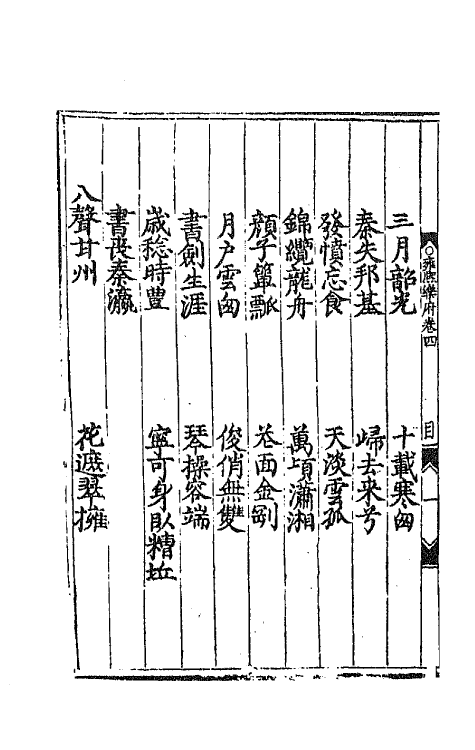 ○雍熙樂府卷四 目 一
三月韶光 十載寒囱
秦失邦基 歸去來兮
發憤忘食 天淡雲孤
錦纜龍舟 萬頃瀟湘
顏子簞瓢 面金剛
月户雲囱 俊俏無雙
書劍生涯 琴操容端
歲稔時豊 寧可身臥糟坵
書喪秦瀛
八聲甘州 花遮翠擁